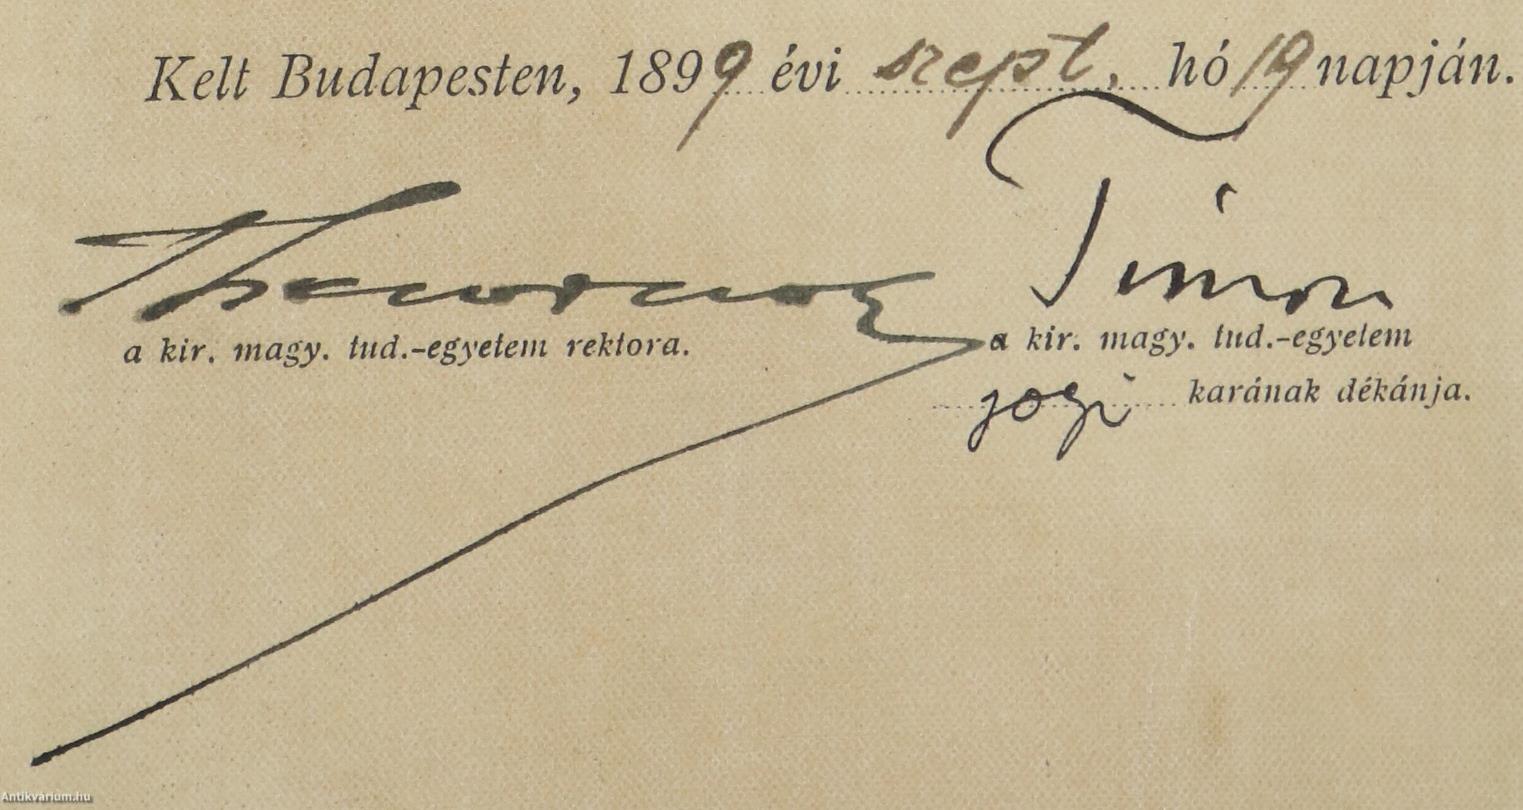 Kelt Budapesten, 1899 évi szept, hó 19 napján.
Timon
a kir. magy. tud.-egyetem rektora.
a kir. magy. tud.-egyetem
jogi karának dékánja.
Antikvárium.hu